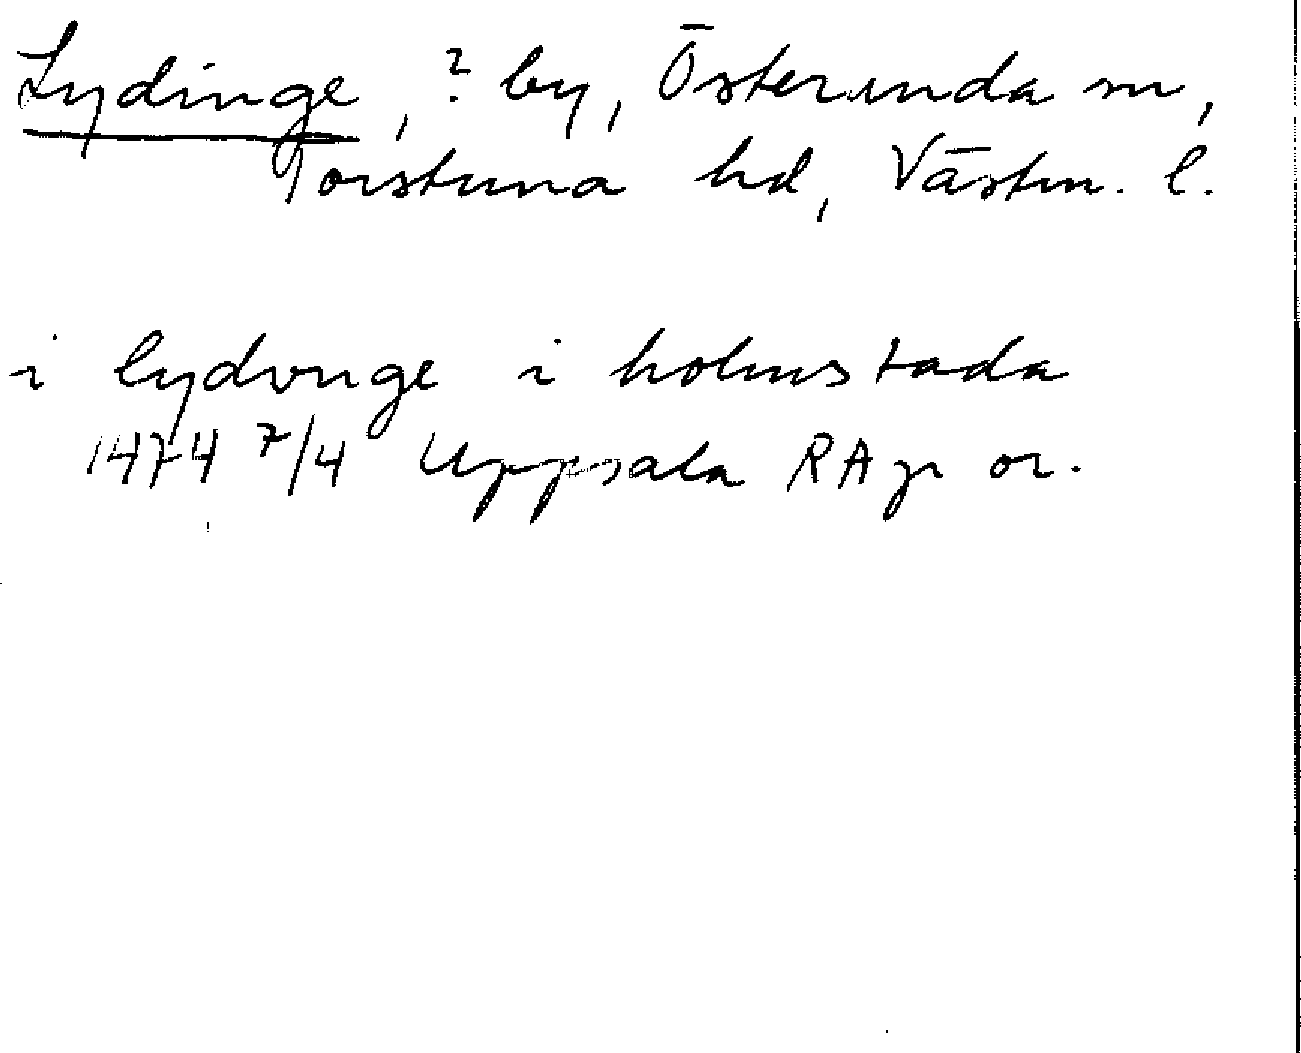 Lydinge, ? by, Österunda sn,
Torstuna hd, Västm. l.
i lydvnge i holmstada
1474 7/4 Uppsala RAp or.